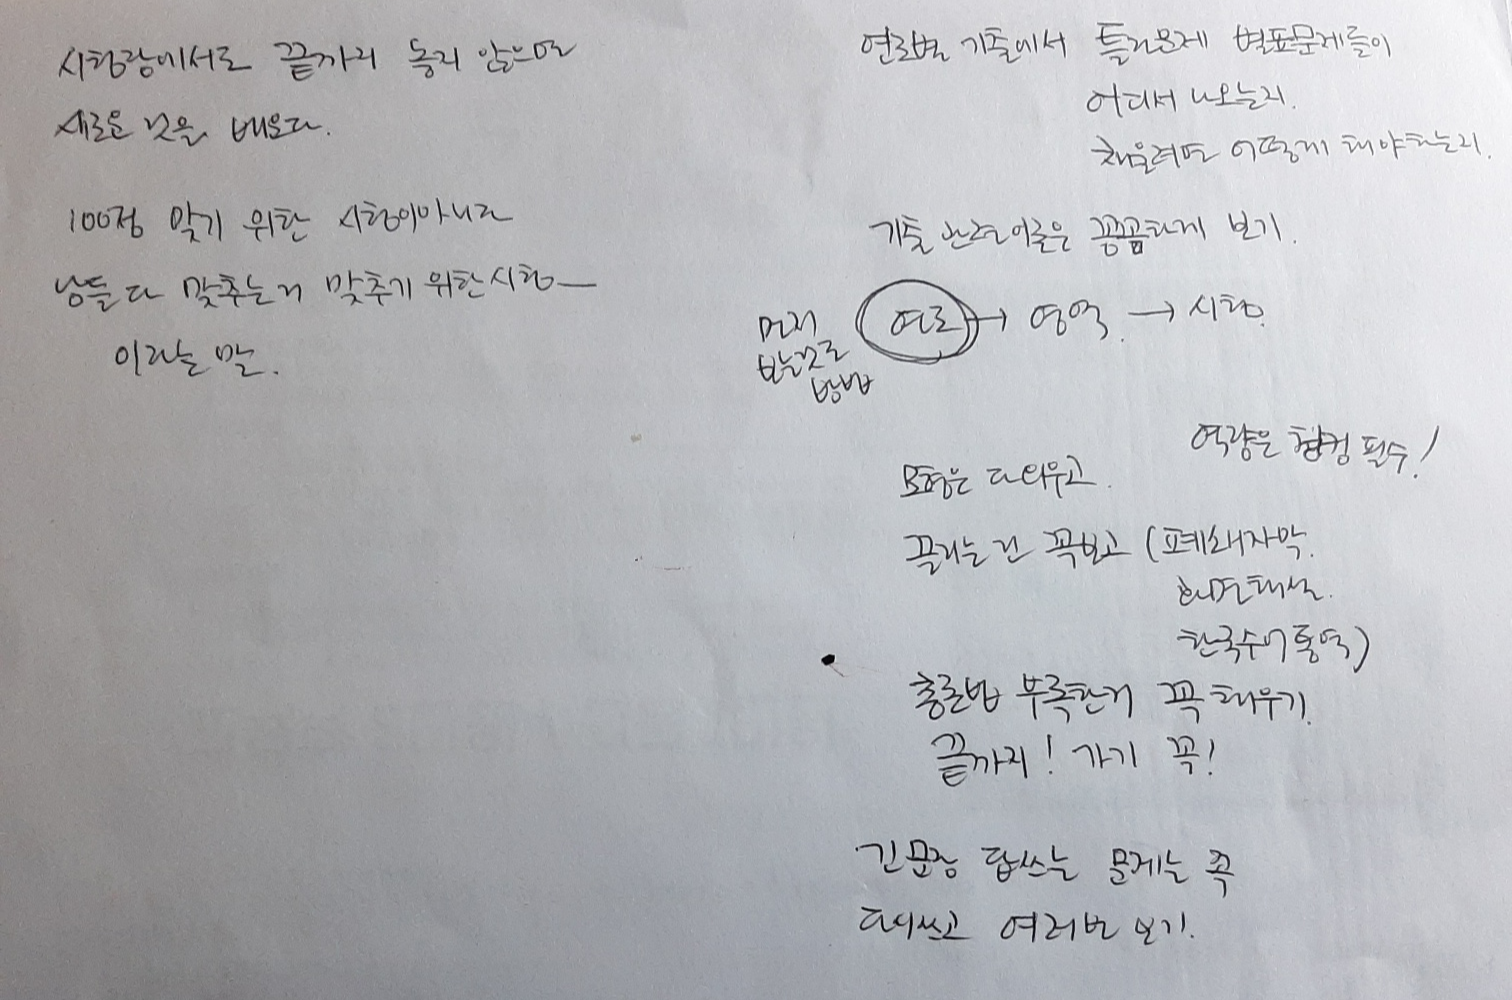 시험장에서도 끝까지 놓지 않으면
새로운 것을 배운다.
100점 맞기 위한 시험이아니라
남들 다 맞추는거 맞추기 위한 시험
이라는 말.
연도별 기출에서 틀린문제 별표문제들이
어디서 나오는지.
채울려면 어떻게 해야하는지.
기출 관련 이론은 꼼꼼하게 보기.
먼저
보는것도
방법
이론 → 영역 → 시험.
역량은 합격 필수!
B형은 다 외우고.
끌리는 건 꼭보고 (폐쇄자막.
화면해설.
한국수어통역)
총론법 부족한거 꼭 채우기.
끝까지! 가기 꼭!
긴문장 답쓰는 문제는 꼭
다시쓰고 여러번 보기.